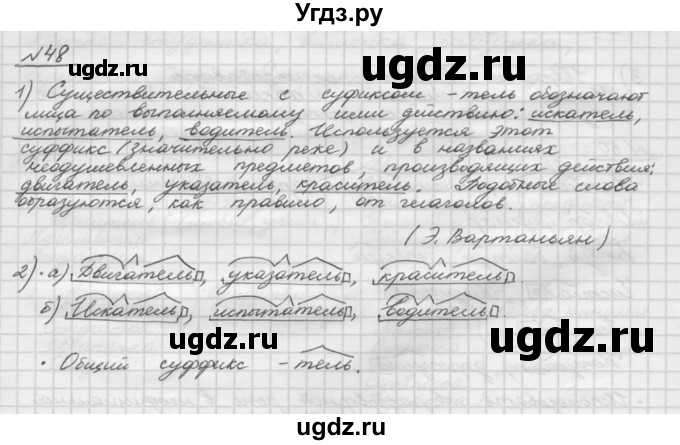 Угдз.ру
№48
1) Существительные с суфиксом -тель обозначают
лица по выполняемому ими действию: искатель,
испытатель, водитель. Используется этот
суффикс (значительно реже) и в названиях
неодушевленных предметов, производящих действия:
двигатель, указатель, краситель. Подобные слова
образуются, как правило, от глаголов.
(Э. Вартаньян)
2) · а) Двигатель, указатель, краситель.
б) Искатель, испытатель, водитель.
· Общий суффикс -тель.
ugdz.ru
ugdz.ru
ugdz.ru
ugdz.ru
ugdz.ru
ugdz.ru
ugdz.ru
ugdz.ru
ugdz.ru